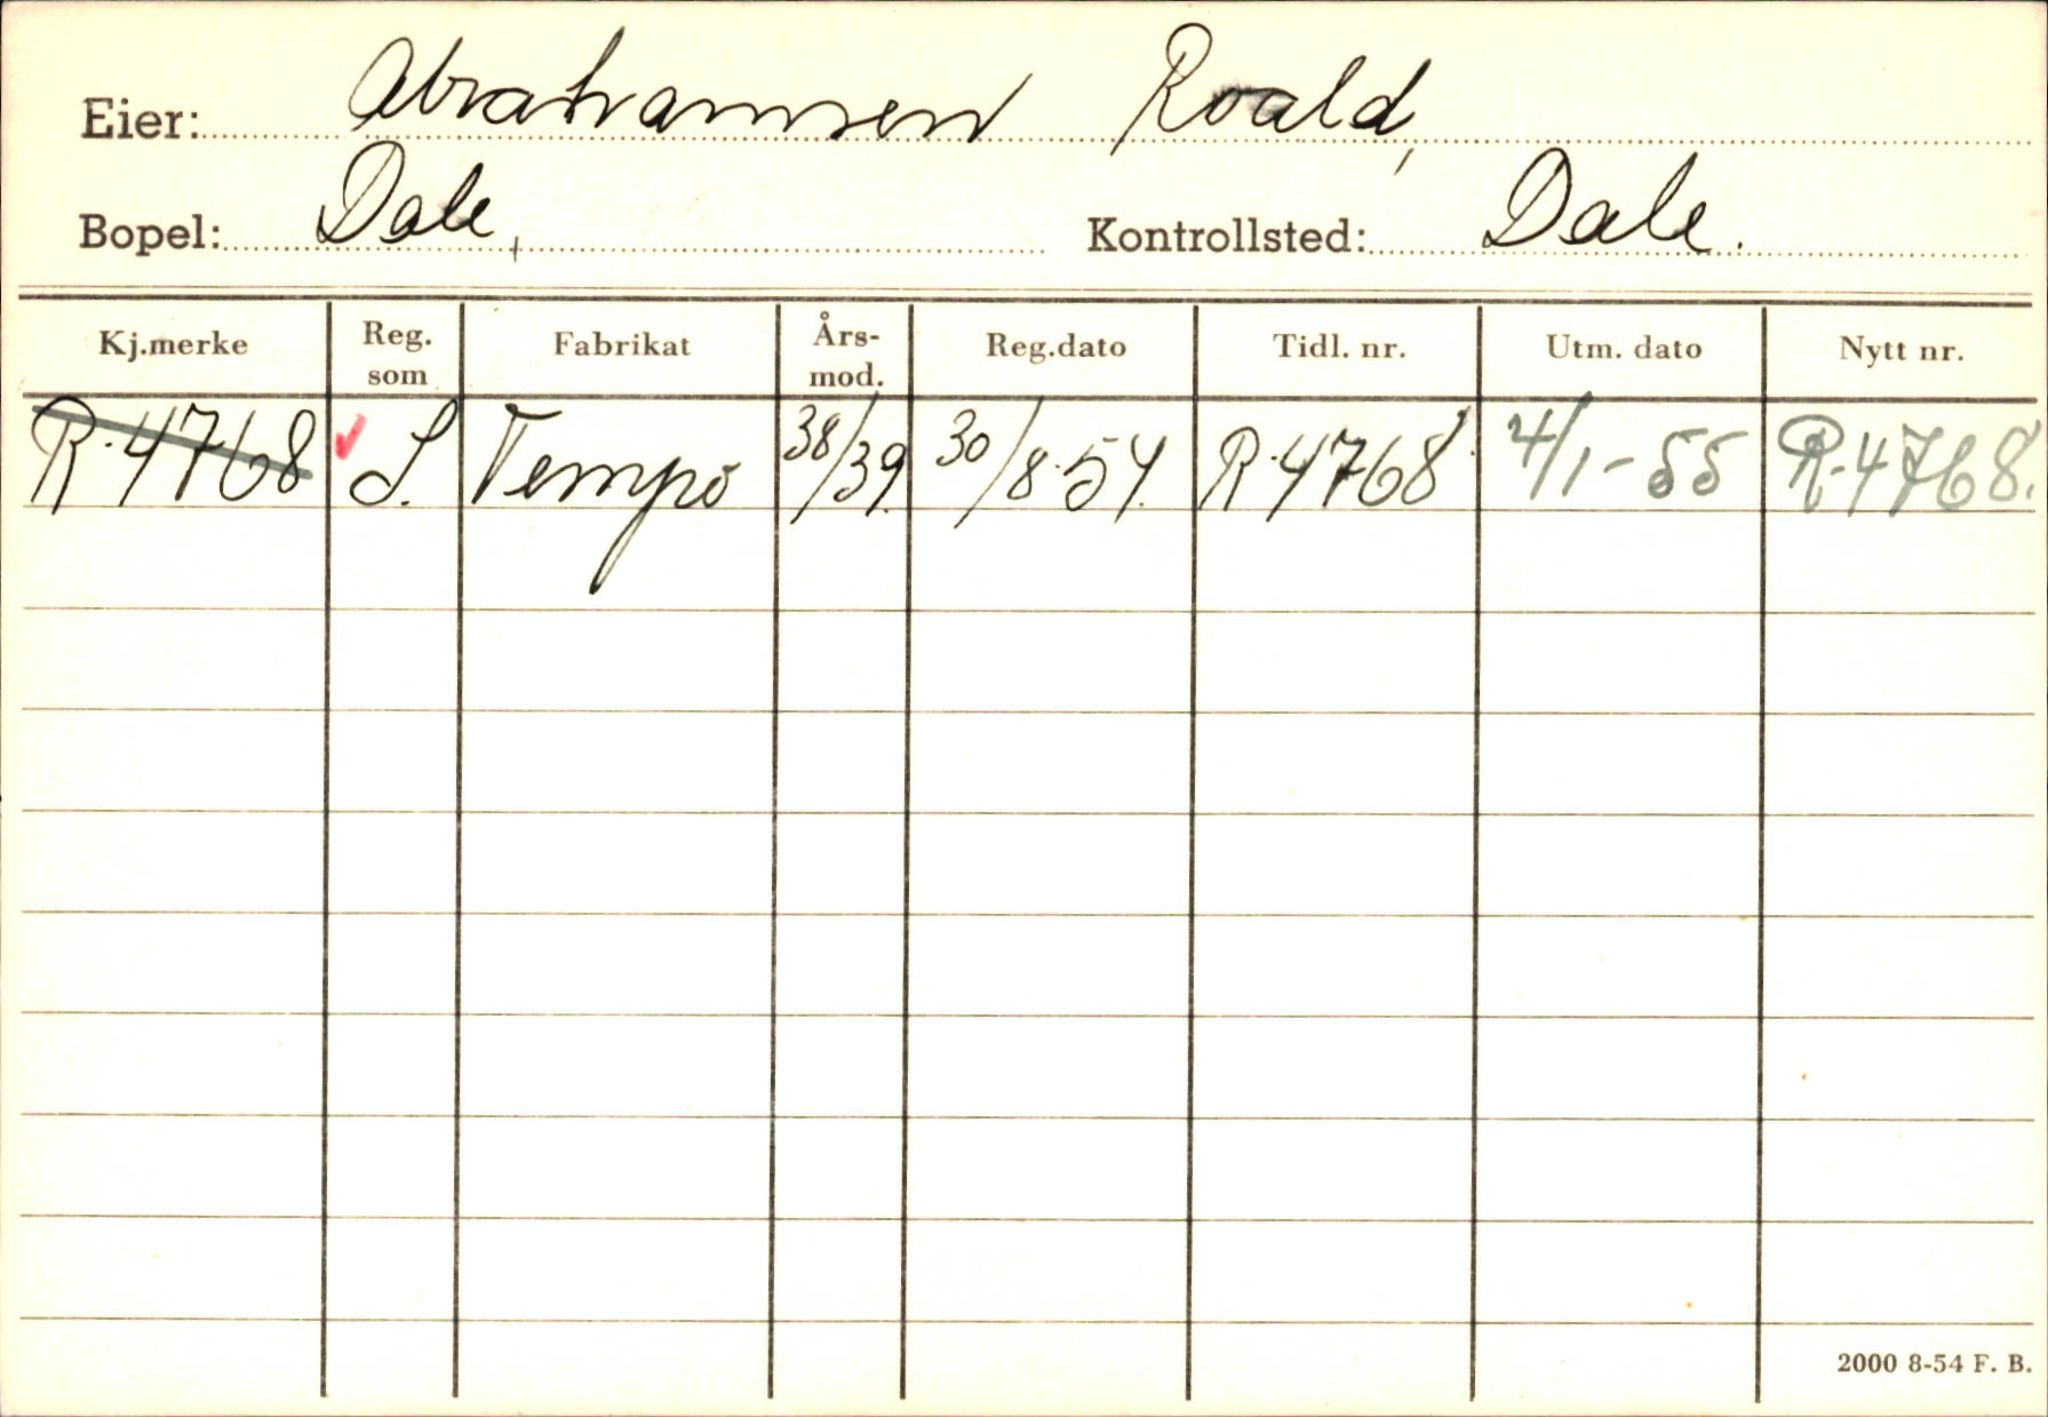 Eier: Abrahamsen Roald,
Bopel: Dale, Kontrollsted: Dale.
Kj.merke Reg. som Fabrikat Års-mod. Reg.dato Tidl. nr. Utm. dato Nytt nr.
R-4768 S. Tempo 38/39. 30/8-54. R-4768 4/1-55 R-4768.
2000 8-54 F. B.